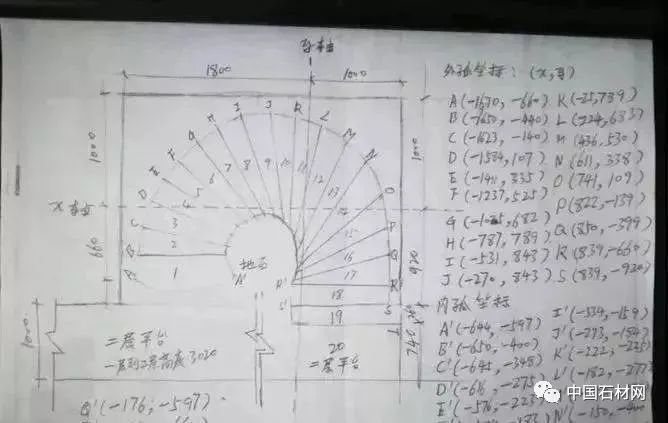 y轴
1800
1000
外弧坐标：(x,y)
A(-1670,-660) K(-25,789)
B(-1650,-440) L(224,683)
C(-1623,-140) M(436,530)
D(-1584,107) N(611,338)
E(-1411,335) O(741,109)
F(-1237,525) P(822,-139)
G(-1025,682) Q(850,-399)
H(-787,789) R(839,-660)
I(-531,843) S(839,-920)
J(-270,843)
内弧坐标
A'(-644,-597) I'(-334,-159)
B'(-650,-400) J'(-273,-184)
C'(-645,-348) K'(-222,-225)
D'(-616,-275) L'(-182,-277)
N'(-150,-400)
x轴
1000
660
1000
920
1000
G H I J K L M N O P Q R
D C
1 2 3 4 5 6 7 8 9 10 11 12 13 14 15 16 17 18 19 20
地面
A' R' S' S T
二层平台
一层到二层高度3020
二层平台
Q'(-176,-597)
中国石材网